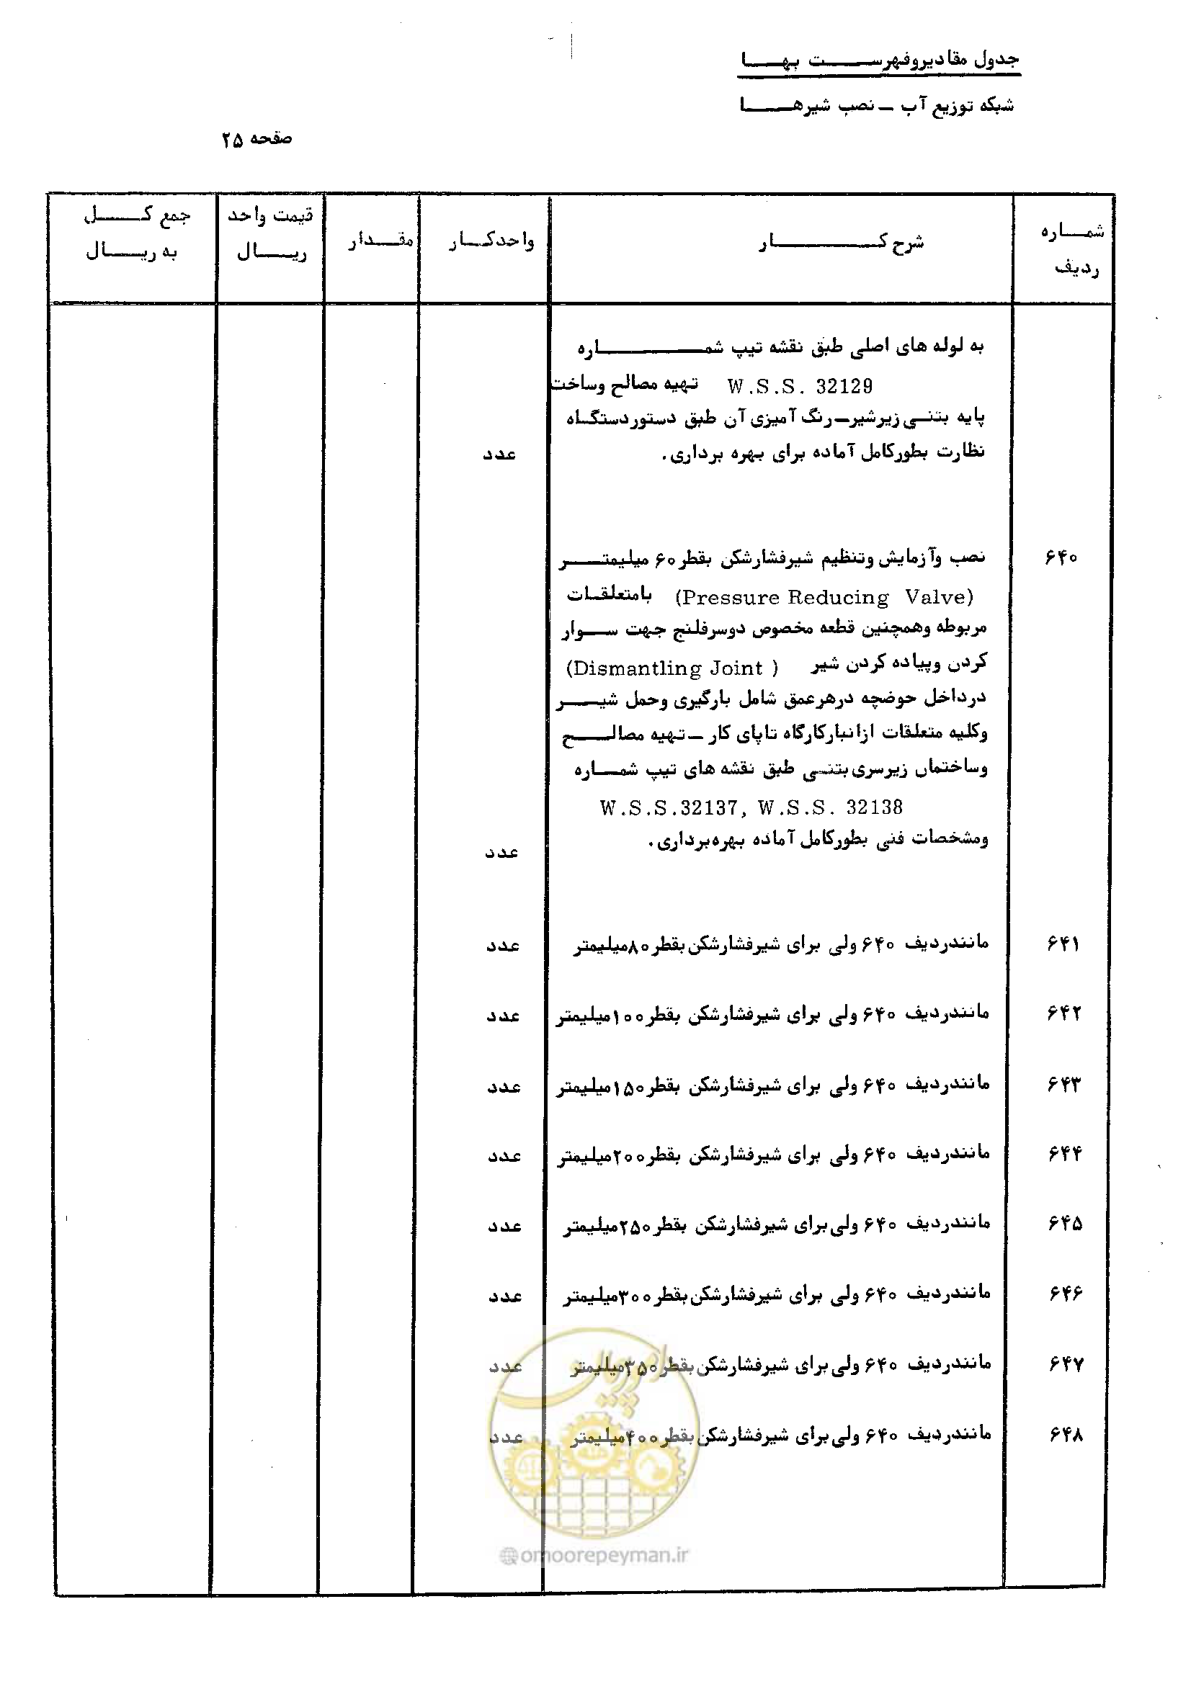 جدول مقادیروفهرست بها
شبکه توزیع آب ـ نصب شیرها
صفحه ۲۵
شماره ردیف
شرح کار
واحدکار
مقدار
قیمت واحد ریال
جمع کل به ریال
به لوله های اصلی طبق نقشه تیپ شماره
W.S.S. 32129 تهیه مصالح وساخت
پایه بتنی زیرشیرـ رنگ آمیزی آن طبق دستوردستگاه
نظارت بطورکامل آماده برای بهره برداری. عدد
۶۴۰ نصب وآزمایش وتنظیم شیرفشارشکن بقطر۶۰ میلیمتر
(Pressure Reducing Valve) بامتعلقات
مربوطه وهمچنین قطعه مخصوص دوسرفلنج جهت سوار
کردن وپیاده کردن شیر (Dismantling Joint )
درداخل حوضچه درهرعمق شامل بارگیری وحمل شیر
وکلیه متعلقات ازانبارکارگاه تاپای کار ـ تهیه مصالح
وساختمان زیرسری بتنی طبق نقشه های تیپ شماره
W.S.S.32137, W.S.S. 32138
ومشخصات فنی بطورکامل آماده بهره‌برداری. عدد
۶۴۱ مانندردیف ۶۴۰ ولی برای شیرفشارشکن بقطر۸۰میلیمتر عدد
۶۴۲ مانندردیف ۶۴۰ ولی برای شیرفشارشکن بقطر۱۰۰میلیمتر عدد
۶۴۳ مانندردیف ۶۴۰ ولی برای شیرفشارشکن بقطر۱۵۰میلیمتر عدد
۶۴۴ مانندردیف ۶۴۰ ولی برای شیرفشارشکن بقطر۲۰۰میلیمتر عدد
۶۴۵ مانندردیف ۶۴۰ ولی برای شیرفشارشکن بقطر۲۵۰میلیمتر عدد
۶۴۶ مانندردیف ۶۴۰ ولی برای شیرفشارشکن بقطر۳۰۰میلیمتر عدد
۶۴۷ مانندردیف ۶۴۰ ولی برای شیرفشارشکن بقطر۳۵۰میلیمتر عدد
۶۴۸ مانندردیف ۶۴۰ ولی برای شیرفشارشکن بقطر۴۰۰میلیمتر عدد
امور پیمان
@omoorepeyman.ir